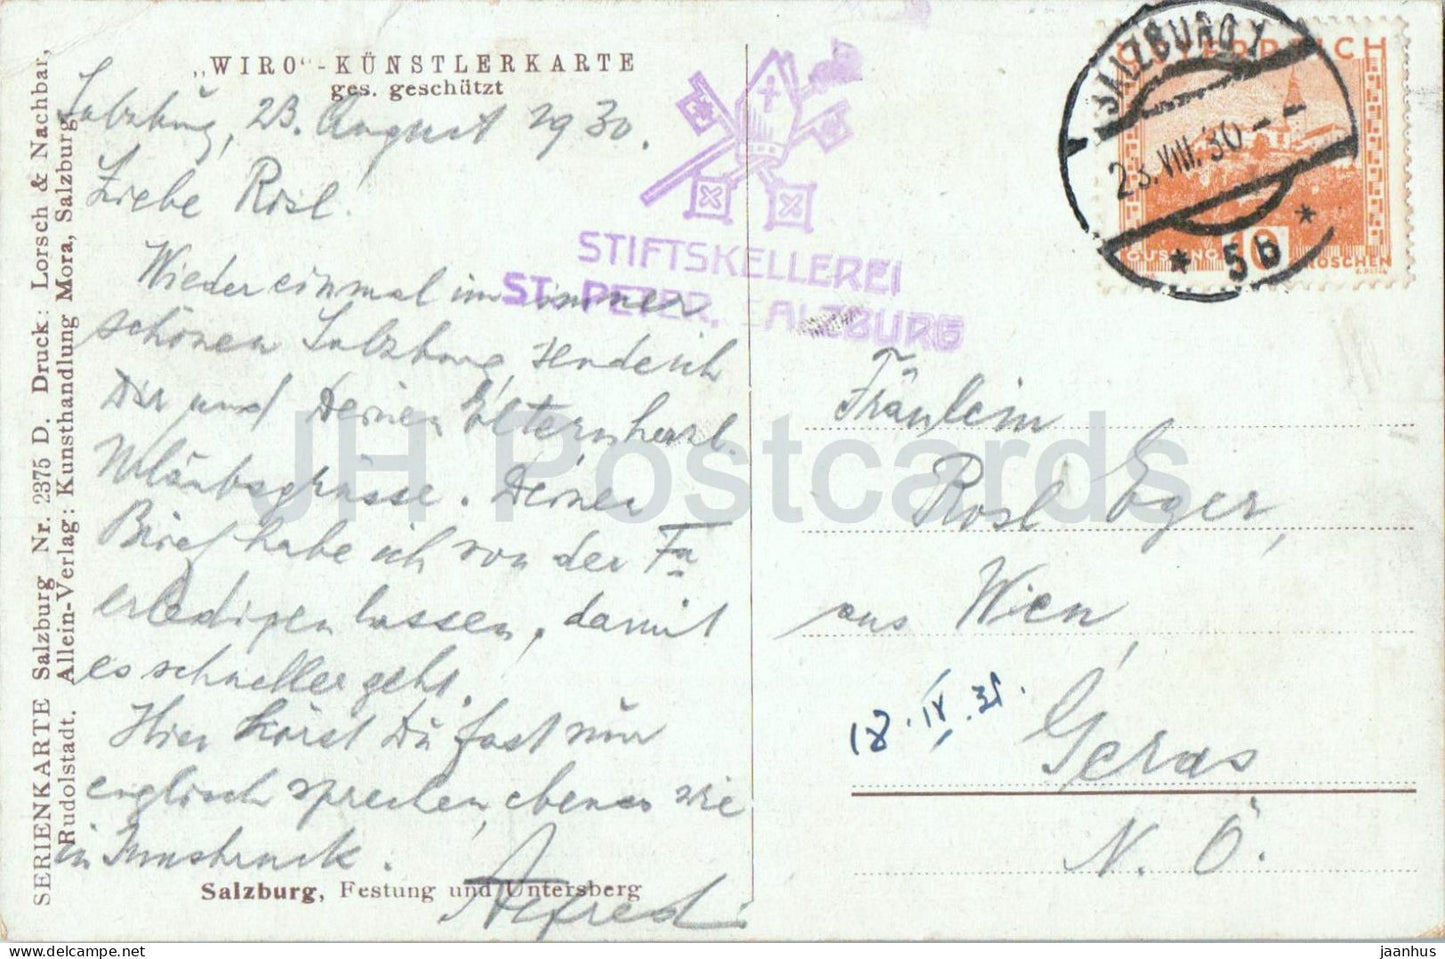 „WIRO“-KÜNSTLERKARTE
ges. geschützt
Salzburg, 23. August 1930.
Liebe Rosl.
Wieder einmal im immer
schönen Salzburg, sende ich
Dir und Deinen Eltern herzl.
Urlaubsgrüsse. Deinen
Brief habe ich von der Fa
erledigen lassen, damit
es schneller geht.
Hier hörst Du fast nur
englisch sprechen, ebenso wie
in Innsbruck.
Alfred
Salzburg, Festung und Untersberg
SERIENKARTE Salzburg Nr. 2375 D. Druck: Lorsch & Nachbar,
Rudolstadt. Allein-Verlag: Kunsthandlung Mora, Salzburg.
STIFTSKELLEREI
ST. PETER, SALZBURG
SALZBURG 1
23.VIII.30
* 5b *
ÖSTERREICH
GÜSSING 10 GROSCHEN
Fräulein
Rosl Eger,
aus Wien,
18.IV.31.
Geras
N. Ö.
JH Postcards
jaanhus